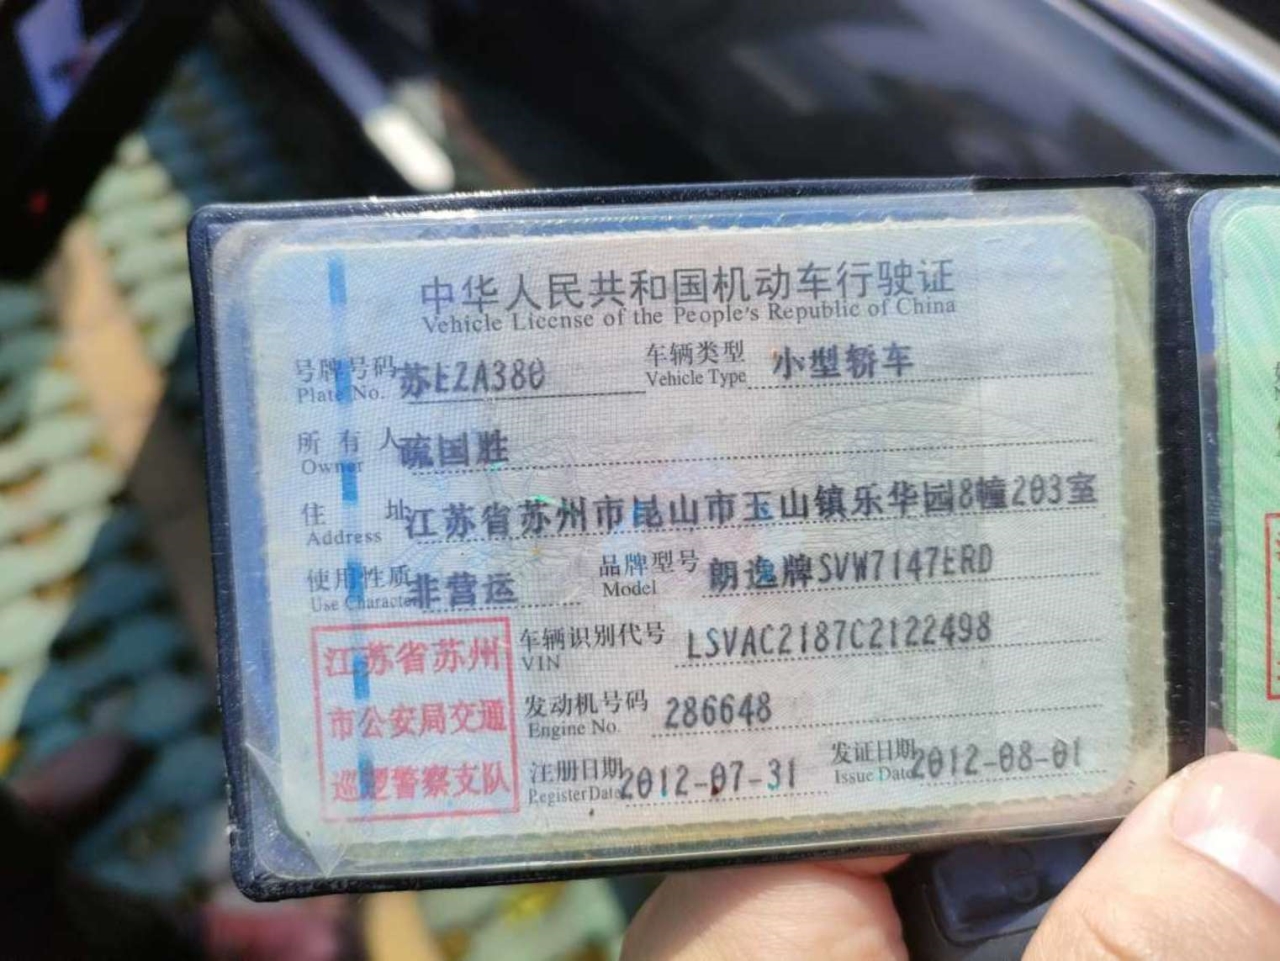 中华人民共和国机动车行驶证
Vehicle License of the People's Republic of China
号牌号码 苏EZA380 车辆类型 小型轿车
Plate No. Vehicle Type
所有人 疏国胜
Owner
住址 江苏省苏州市昆山市玉山镇乐华园8幢203室
Address
使用性质 非营运 品牌型号 朗逸牌SVW7147ERD
Use Character Model
江苏省苏州
市公安局交通
巡逻警察支队
车辆识别代号 LSVAC2187C2122498
VIN
发动机号码 286648
Engine No.
注册日期 2012-07-31 发证日期 2012-08-01
Register Date Issue Date